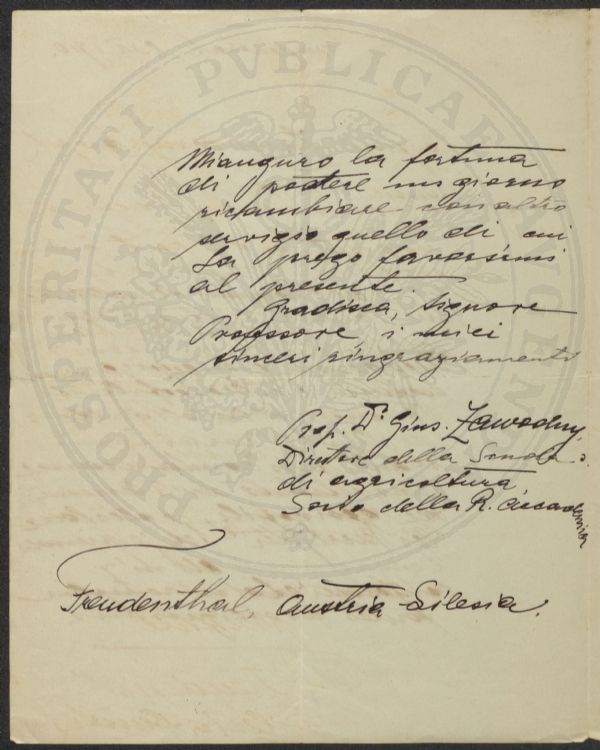 PROSPERITATI PVBLICAE AVGENDAE
Mi auguro la fortuna
di potere un giorno
ricambiare con altro
servigio quello di cui
La prego favorirmi
al presente.
Gradisca, Signore
Professore, i miei
sinceri ringraziamenti
Prof. Dr. Gius. Zawodny,
Direttore della Scuola s.
di agricoltura
Socio della R. Accademia
Freudenthal, Austria-Silesia.